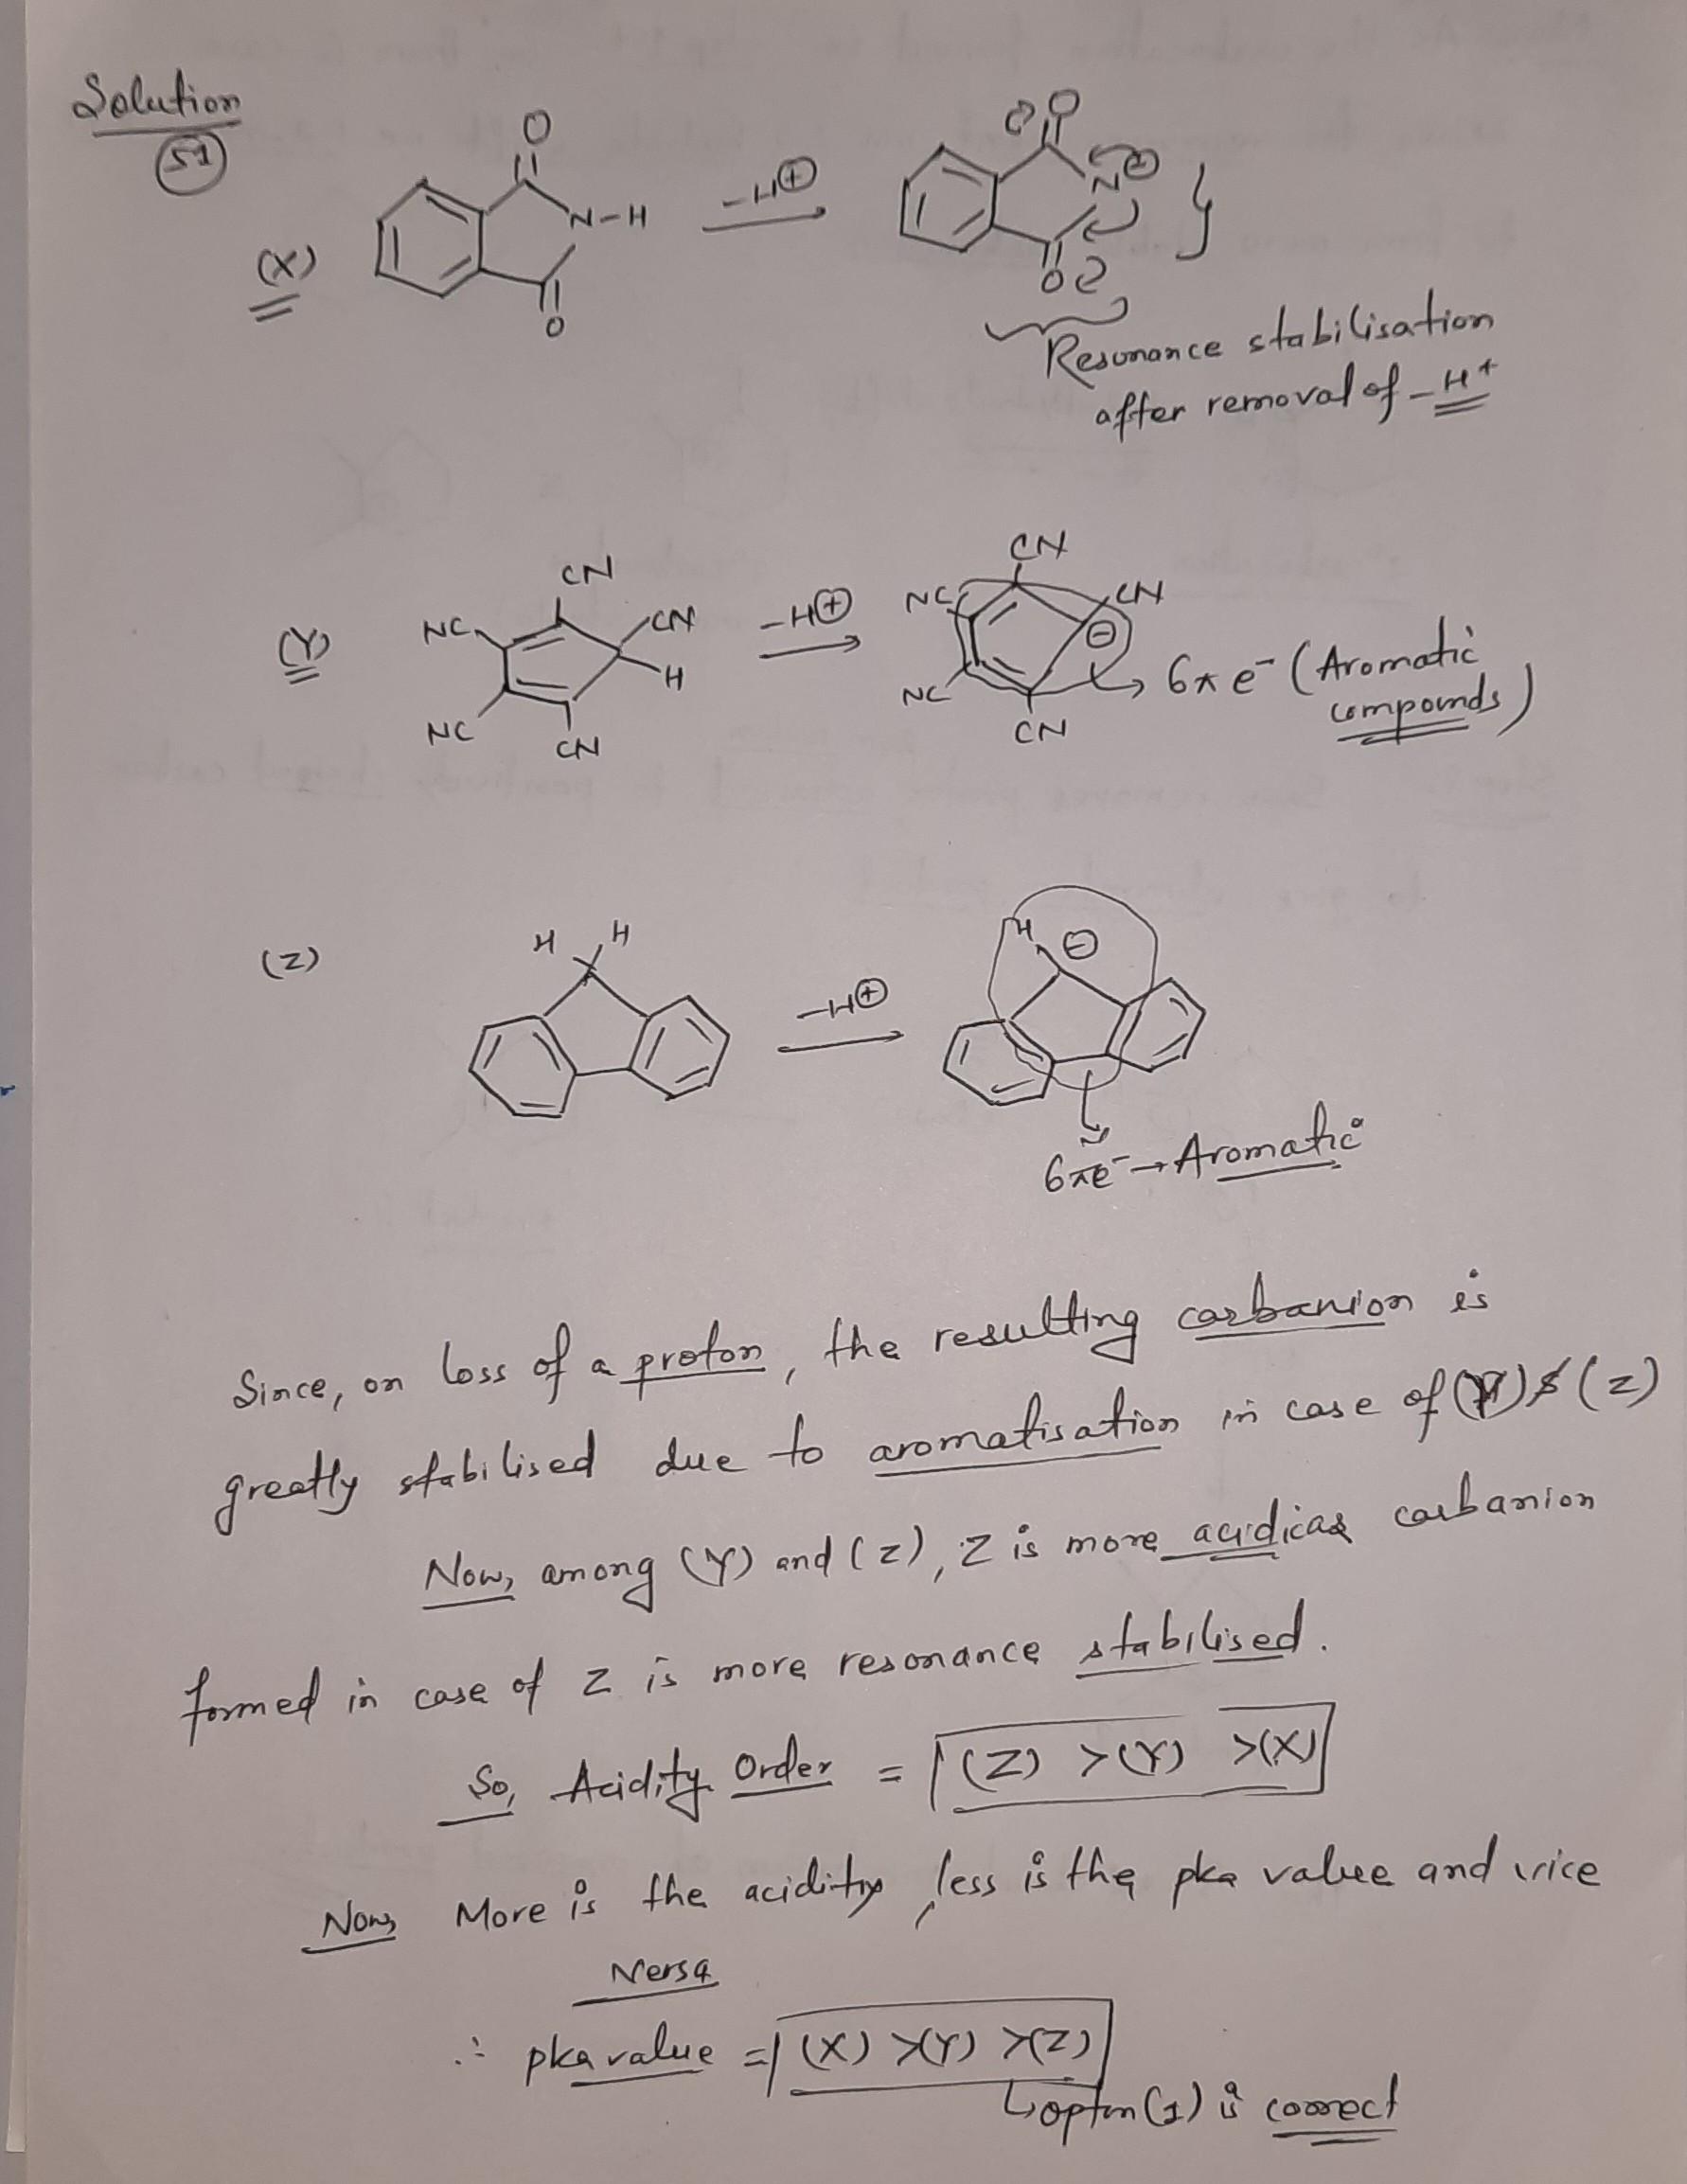 Solution
51
(X)
O
N-H
O
-H⊕
O
N
⊖
O
Resonance stabilisation
after removal of -H+
(Y)
CN
NC
CN
H
NC
CN
-H⊕
CN
NC
CN
⊖
NC
CN
6πe- (Aromatic
compounds)
(Z)
H H
-H⊕
H
⊖
6πe- → Aromatic
Since, on loss of a proton, the resulting carbanion is
greatly stabilised due to aromatisation in case of (Y) & (Z)
Now, among (Y) and (Z), Z is more acidic as carbanion
formed in case of Z is more resonance stabilised.
So, Acidity Order = (Z) >(Y) >(X)
Now, More is the acidity, less is the pka value and vice
versa
∴ pka value = (X) >(Y) >(Z)
↳ option (1) is correct